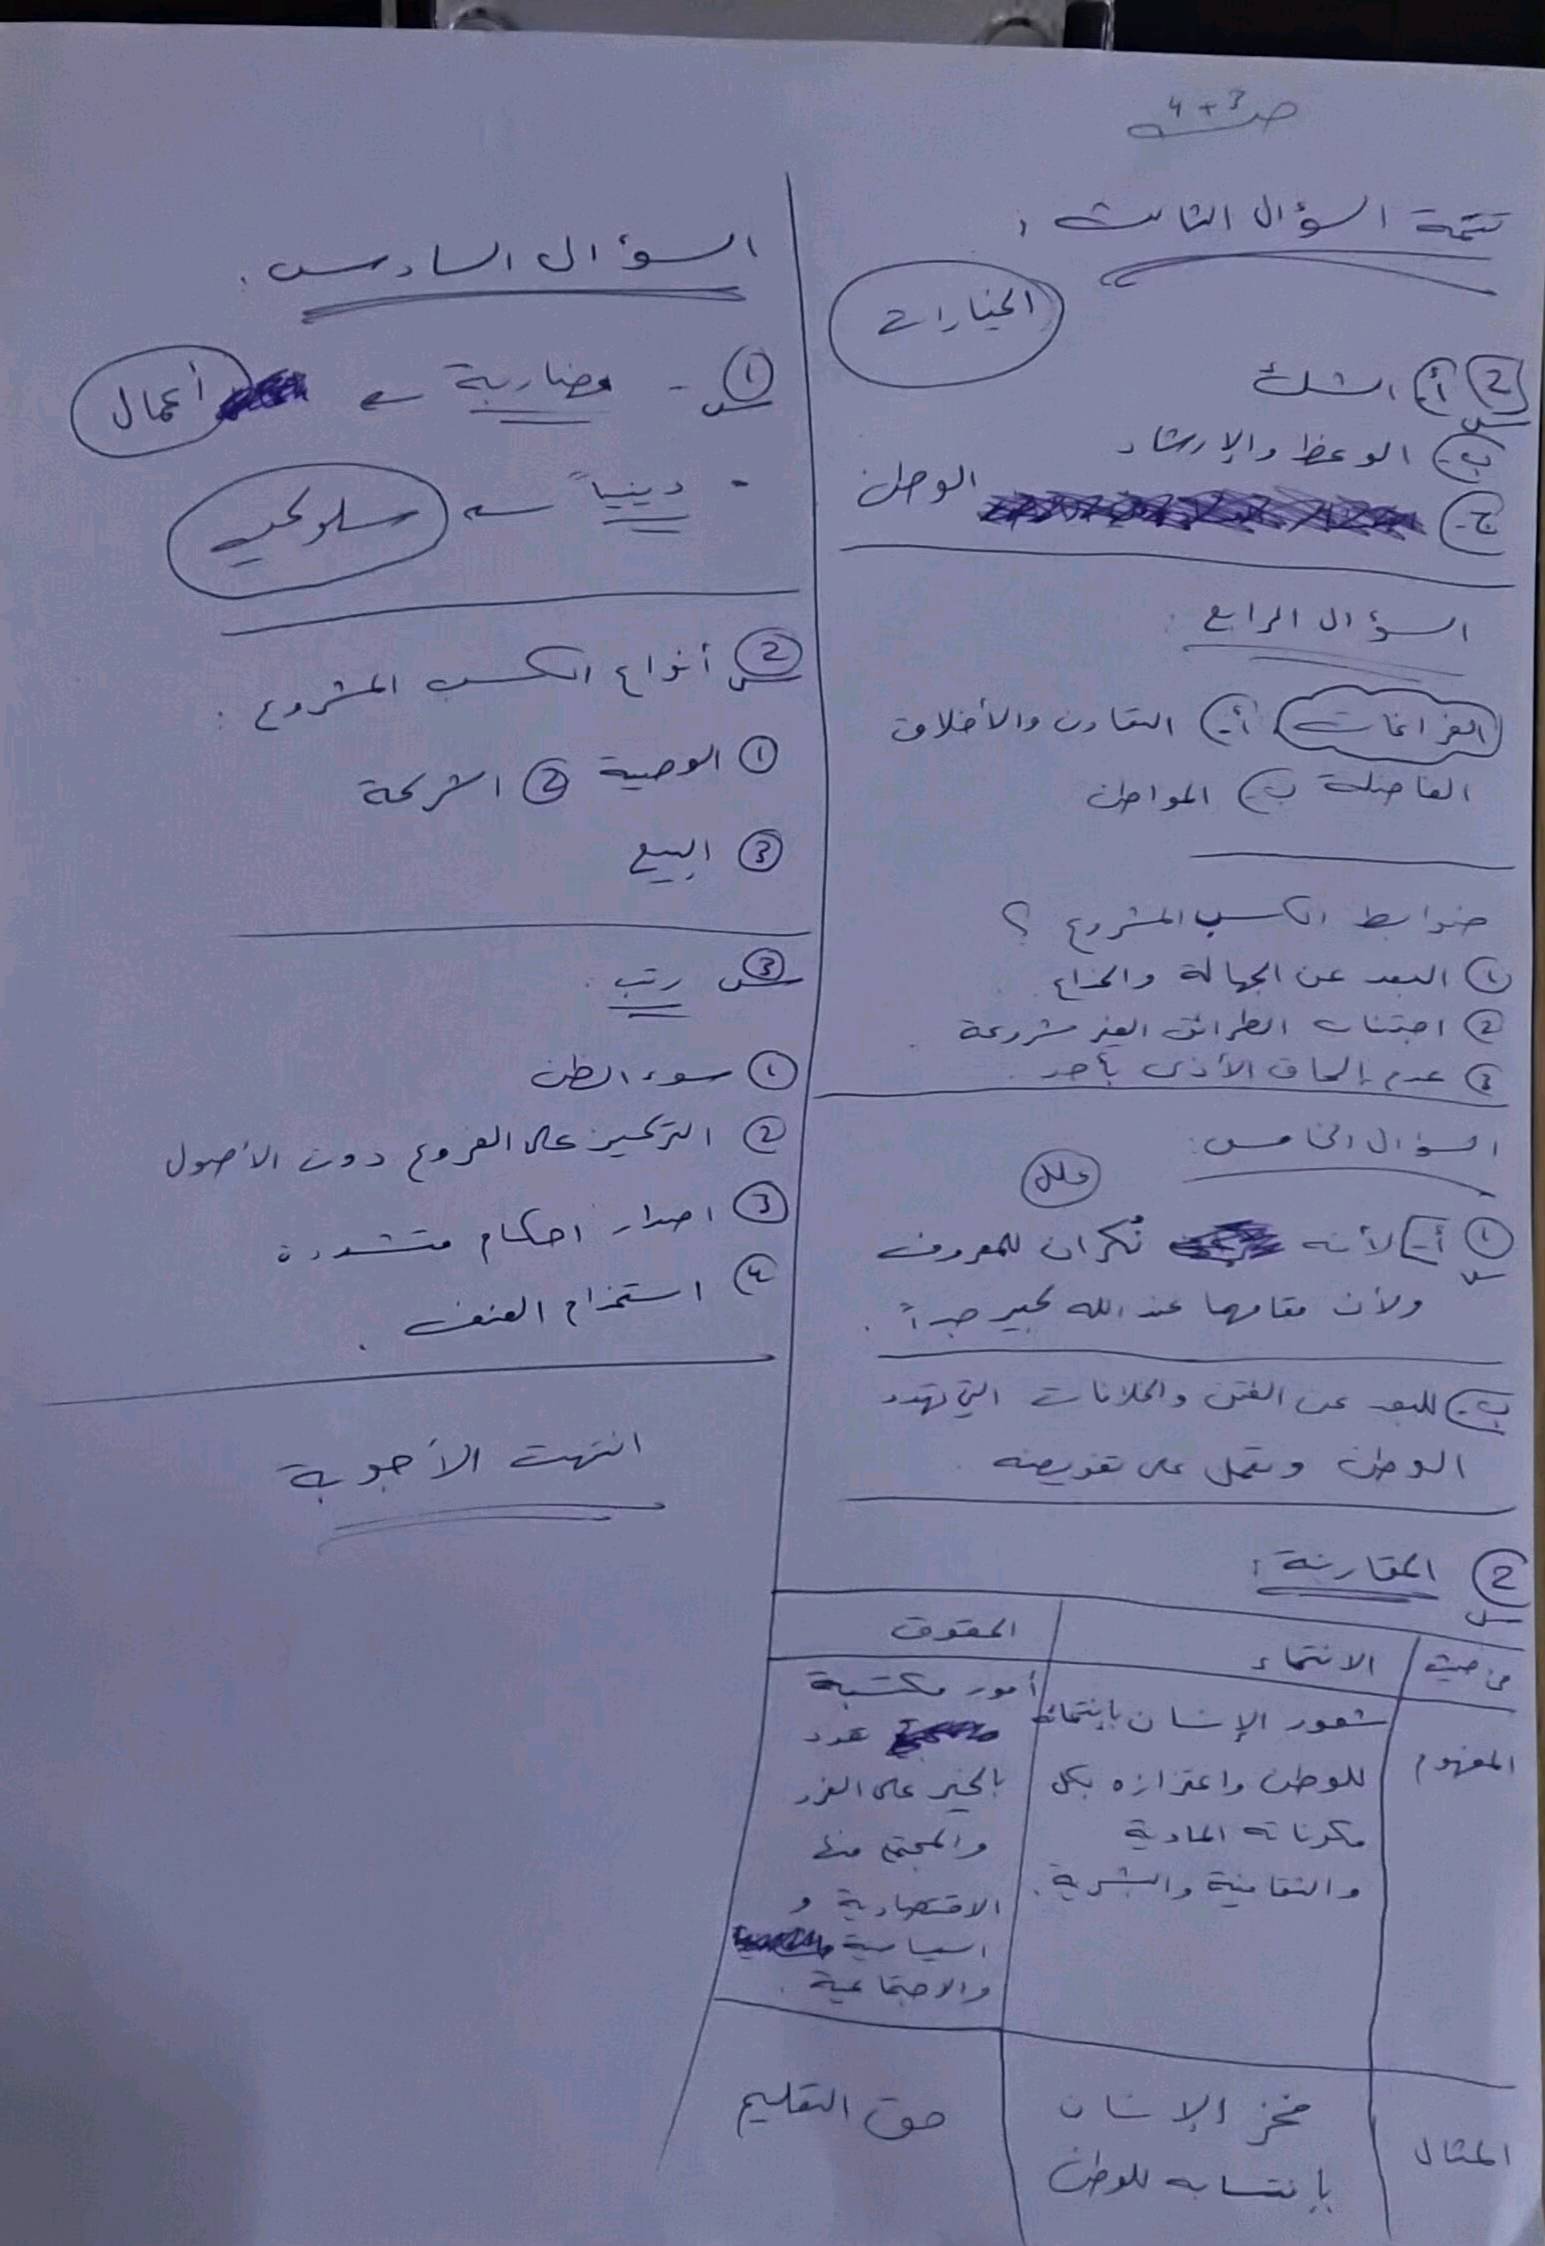 ص 3 + 4
تتمة السؤال الثالث :
الخيارات
س2 أ- الشك
ب- الوعظ والإرشاد
ج- الوطن
السؤال الرابع :
الفراغات أ- التعاون والأخلاق
الفاضلة ب- المواطن
ضوابط الكسب المشروع ؟
1 البعد عن الجهالة والخداع
2 اجتناب الطرائق الغير مشروعة
3 عدم إلحاق الأذى بأحد .
السؤال الخامس :
علل
س1 أ- لأنه نُكران للمعروف
ولأن مقامها عند الله كبير جداً .
ب- للبعد عن الفتن والخلافات التي تهدد
الوطن وتعمل على تقويضه .
س2 المقارنة :
من حيث الانتماء الحقوق
المفهوم
شعور الإنسان بإنتمائه
للوطن واعتزازه بكل
مكوناته المادية
والثقافية والبشرية .
أمور مكتسبة
تعود
بالخير على الفرد
والمجتمع منها
الاقتصادية و
السياسية
والاجتماعية .
المثال
فخر الإنسان
بإنتسابه للوطن
حق التعليم
السؤال السادس :
س1 - مضاربة أعمال
- دينياً سلوكي
س2 أنواع الكسب المشروع :
1 الوصية 2 الشركة
3 البيع
س3 رتب :
1 سوء الظن
2 التركيز على الفروع دون الأصول
3 اصدار احكام متشددة
4 استخدام العنف .
انتهت الأجوبة